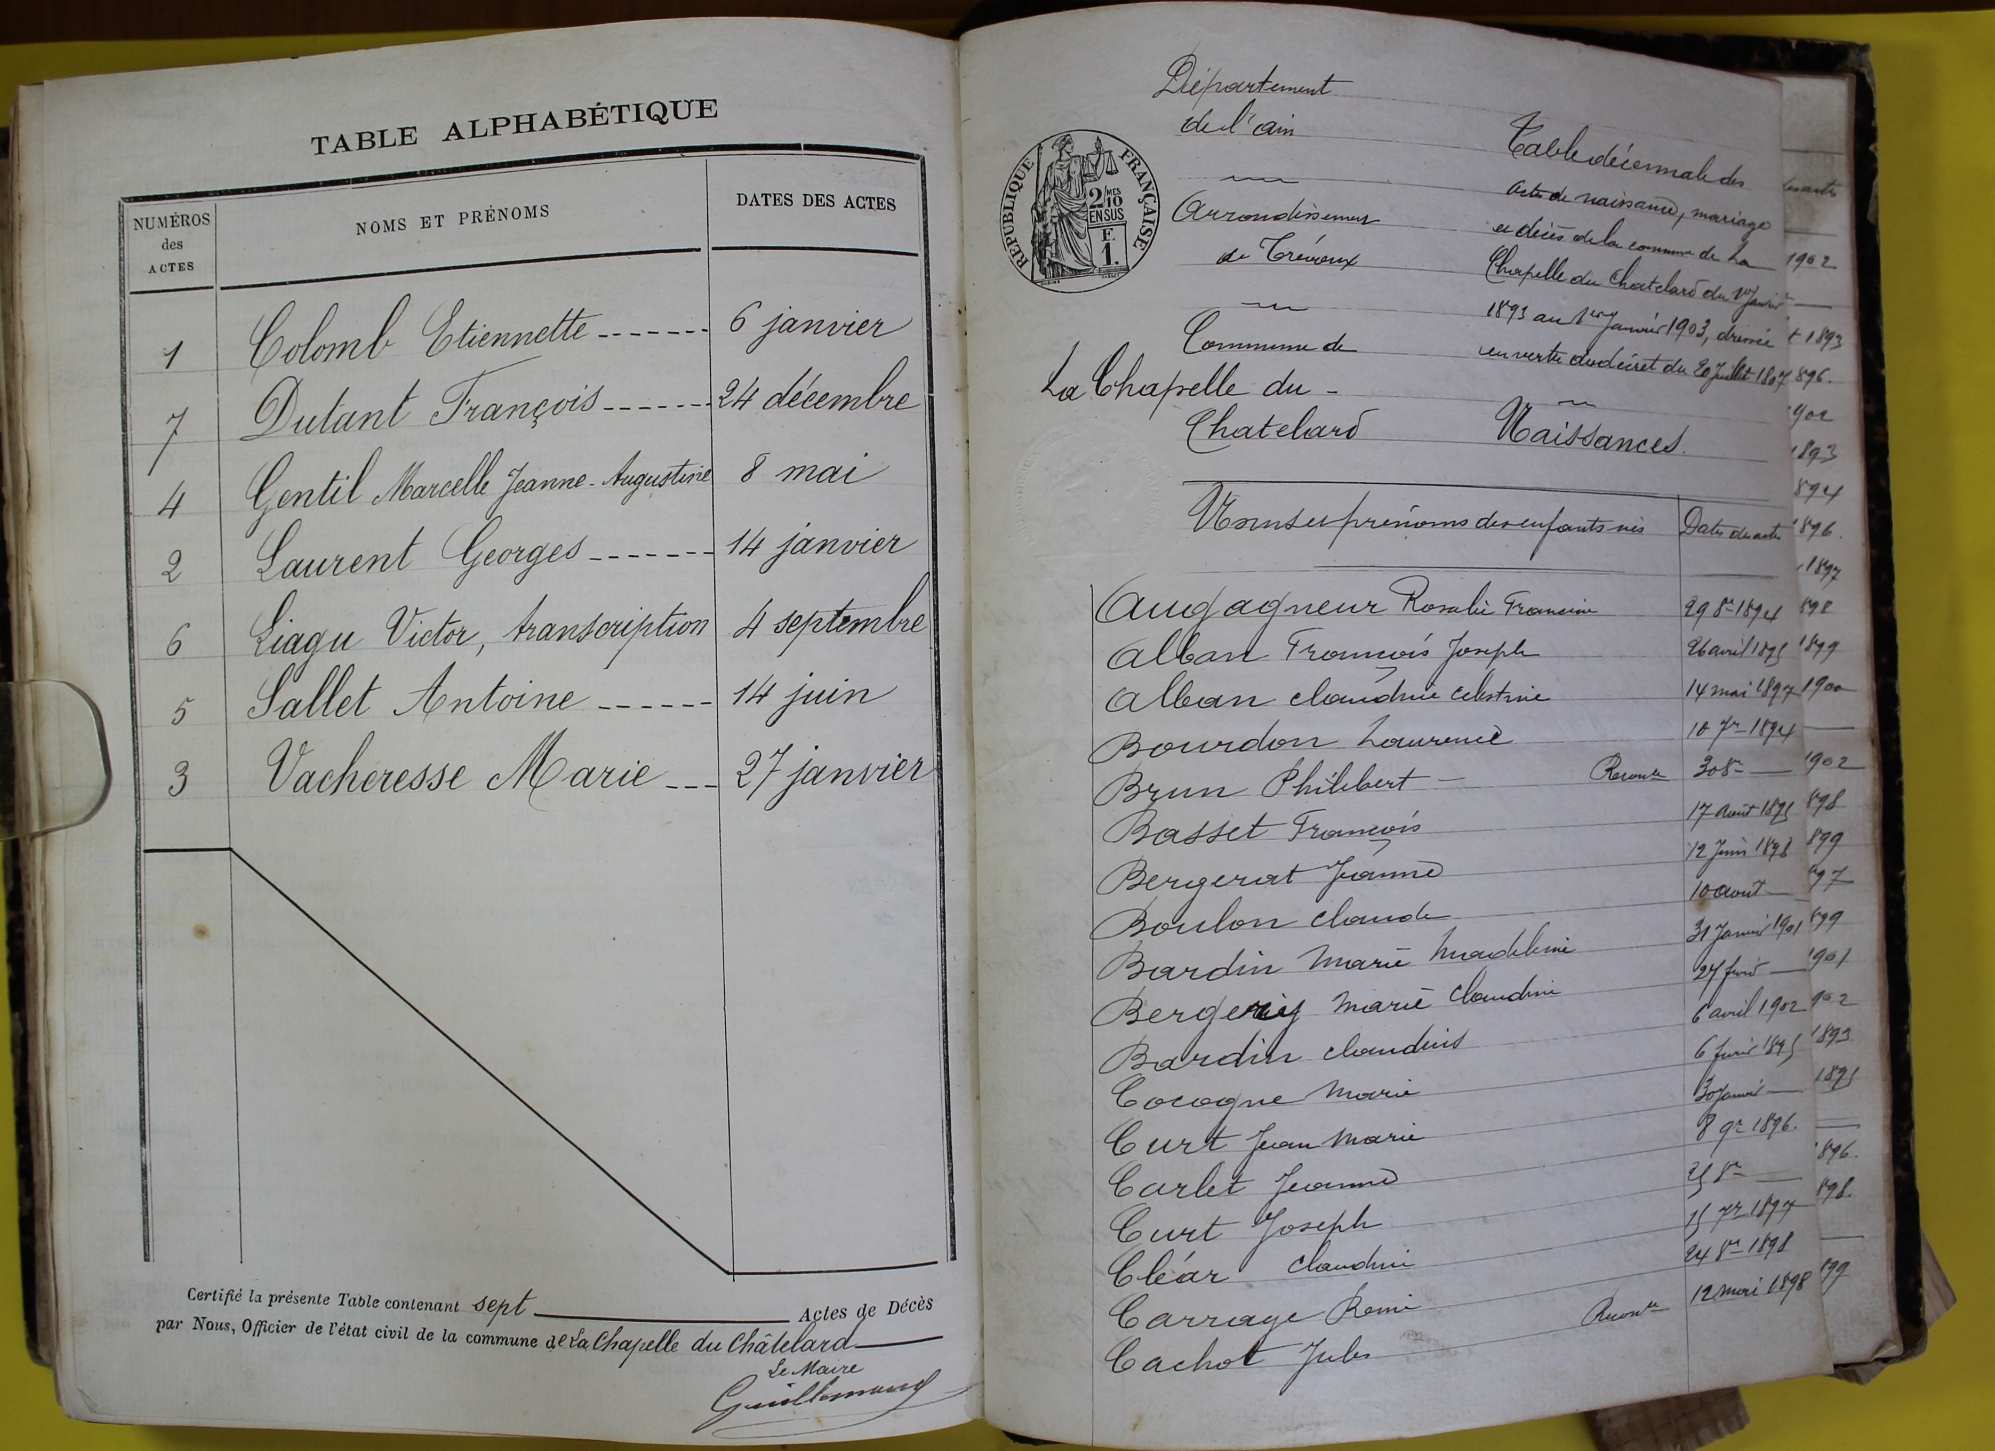 TABLE ALPHABÉTIQUE
NUMÉROS des ACTES NOMS ET PRÉNOMS DATES DES ACTES
1 Colomb Etiennette 6 janvier
7 Dutant François 24 décembre
4 Gentil Marcelle Jeanne-Augustine 8 mai
2 Laurent Georges 14 janvier
6 Liagu Victor, transcription 4 septembre
5 Sallet Antoine 14 juin
3 Vacheresse Marie 27 janvier
Certifié la présente Table contenant sept Actes de Décès
par Nous, Officier de l'état civil de la commune de La Chapelle du Châtelard
Le Maire
Département
de l'ain
Arrondissement
de Trévoux
Commune de
La Chapelle du
Chatelard
RÉPUBLIQUE FRANÇAISE
2 MES
10
EN SUS
F.
1.
Table décennale des
actes de naissance, mariage
et décès de la commune de La
Chapelle du Chatelard du 1er Janvier
1893 au 1er Janvier 1903, dressée
en vertu du décret du 20 Juillet 1807
Naissances.
Noms et prénoms des enfants nés Dates des actes
Augagneur Rosalie Francine 29 8re 1894
Alban François Joseph 26 avril 1895
Alban Claudine Célestine 14 mai 1897
Bourdon Laurence 10 7re 1894
Brun Philibert 30 8re
Basset François 17 Août 1895
Bergerat Jeanne 12 Juin 1898
Boulon Claude 10 août
Bardin Marie Madeleine 31 Janvier 1901
Marie Claudine 27
Bardin Claudius 6 avril 1902
Cocogne Marie 6 1895
Curt Jean Marie 30 Janvier
Carlet Jeanne 8 9re 1896.
Curt Joseph 25 8re
Cléar Claudine 15 7re 1897
Carrage Remi 24 8re 1898
Cachot Jules 12 mai 1898
1902
1893
896.
902
1893
894
1896.
1897
898
1899
1900
1902
898
899
897
899
1901
902
1893
1895
896.
898.
899